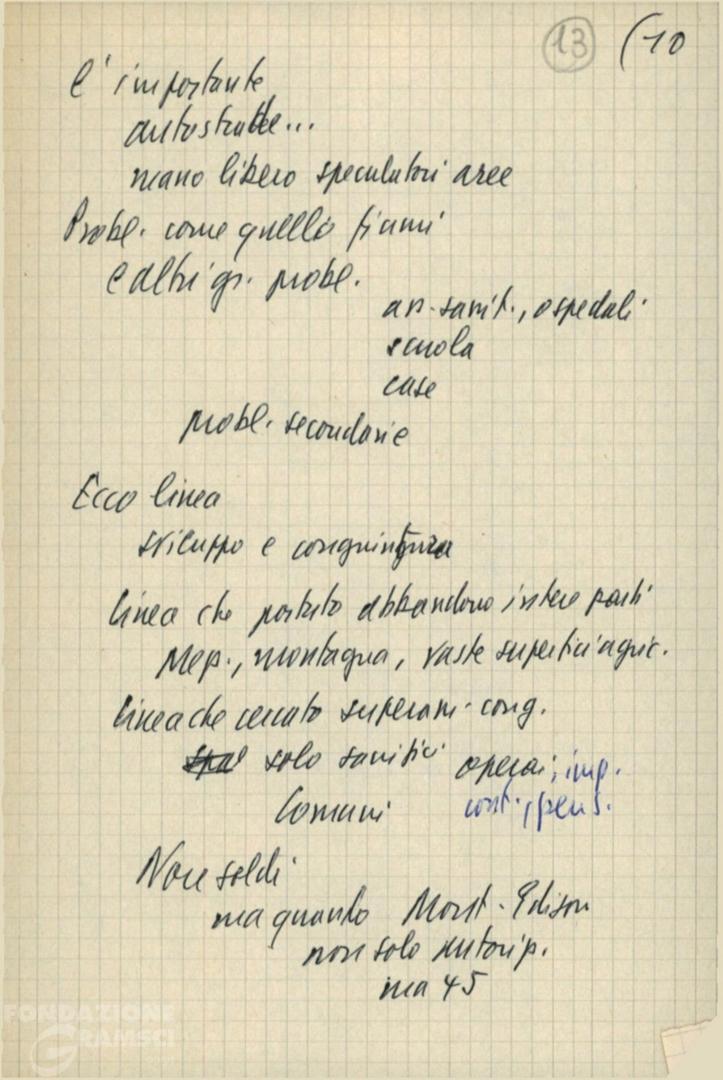 13 (10
l'importante
autostrade...
mano libero speculatori aree
Probl. come quello fiumi
e altri gr. probl.
ass. sanit., ospedali
scuola
case
probl. secondarie
Ecco linea
sviluppo e congiuntura
linea che portato abbandono intere parti
Mep., montagna, vaste superfici agric.
linea che cercato superam. cong.
solo sacrifici operai, imp.
Comuni cont., pens.
Non soldi
ma quando Mont-Edison
non solo autorip.
ma 45
FONDAZIONE
GRAMSCI